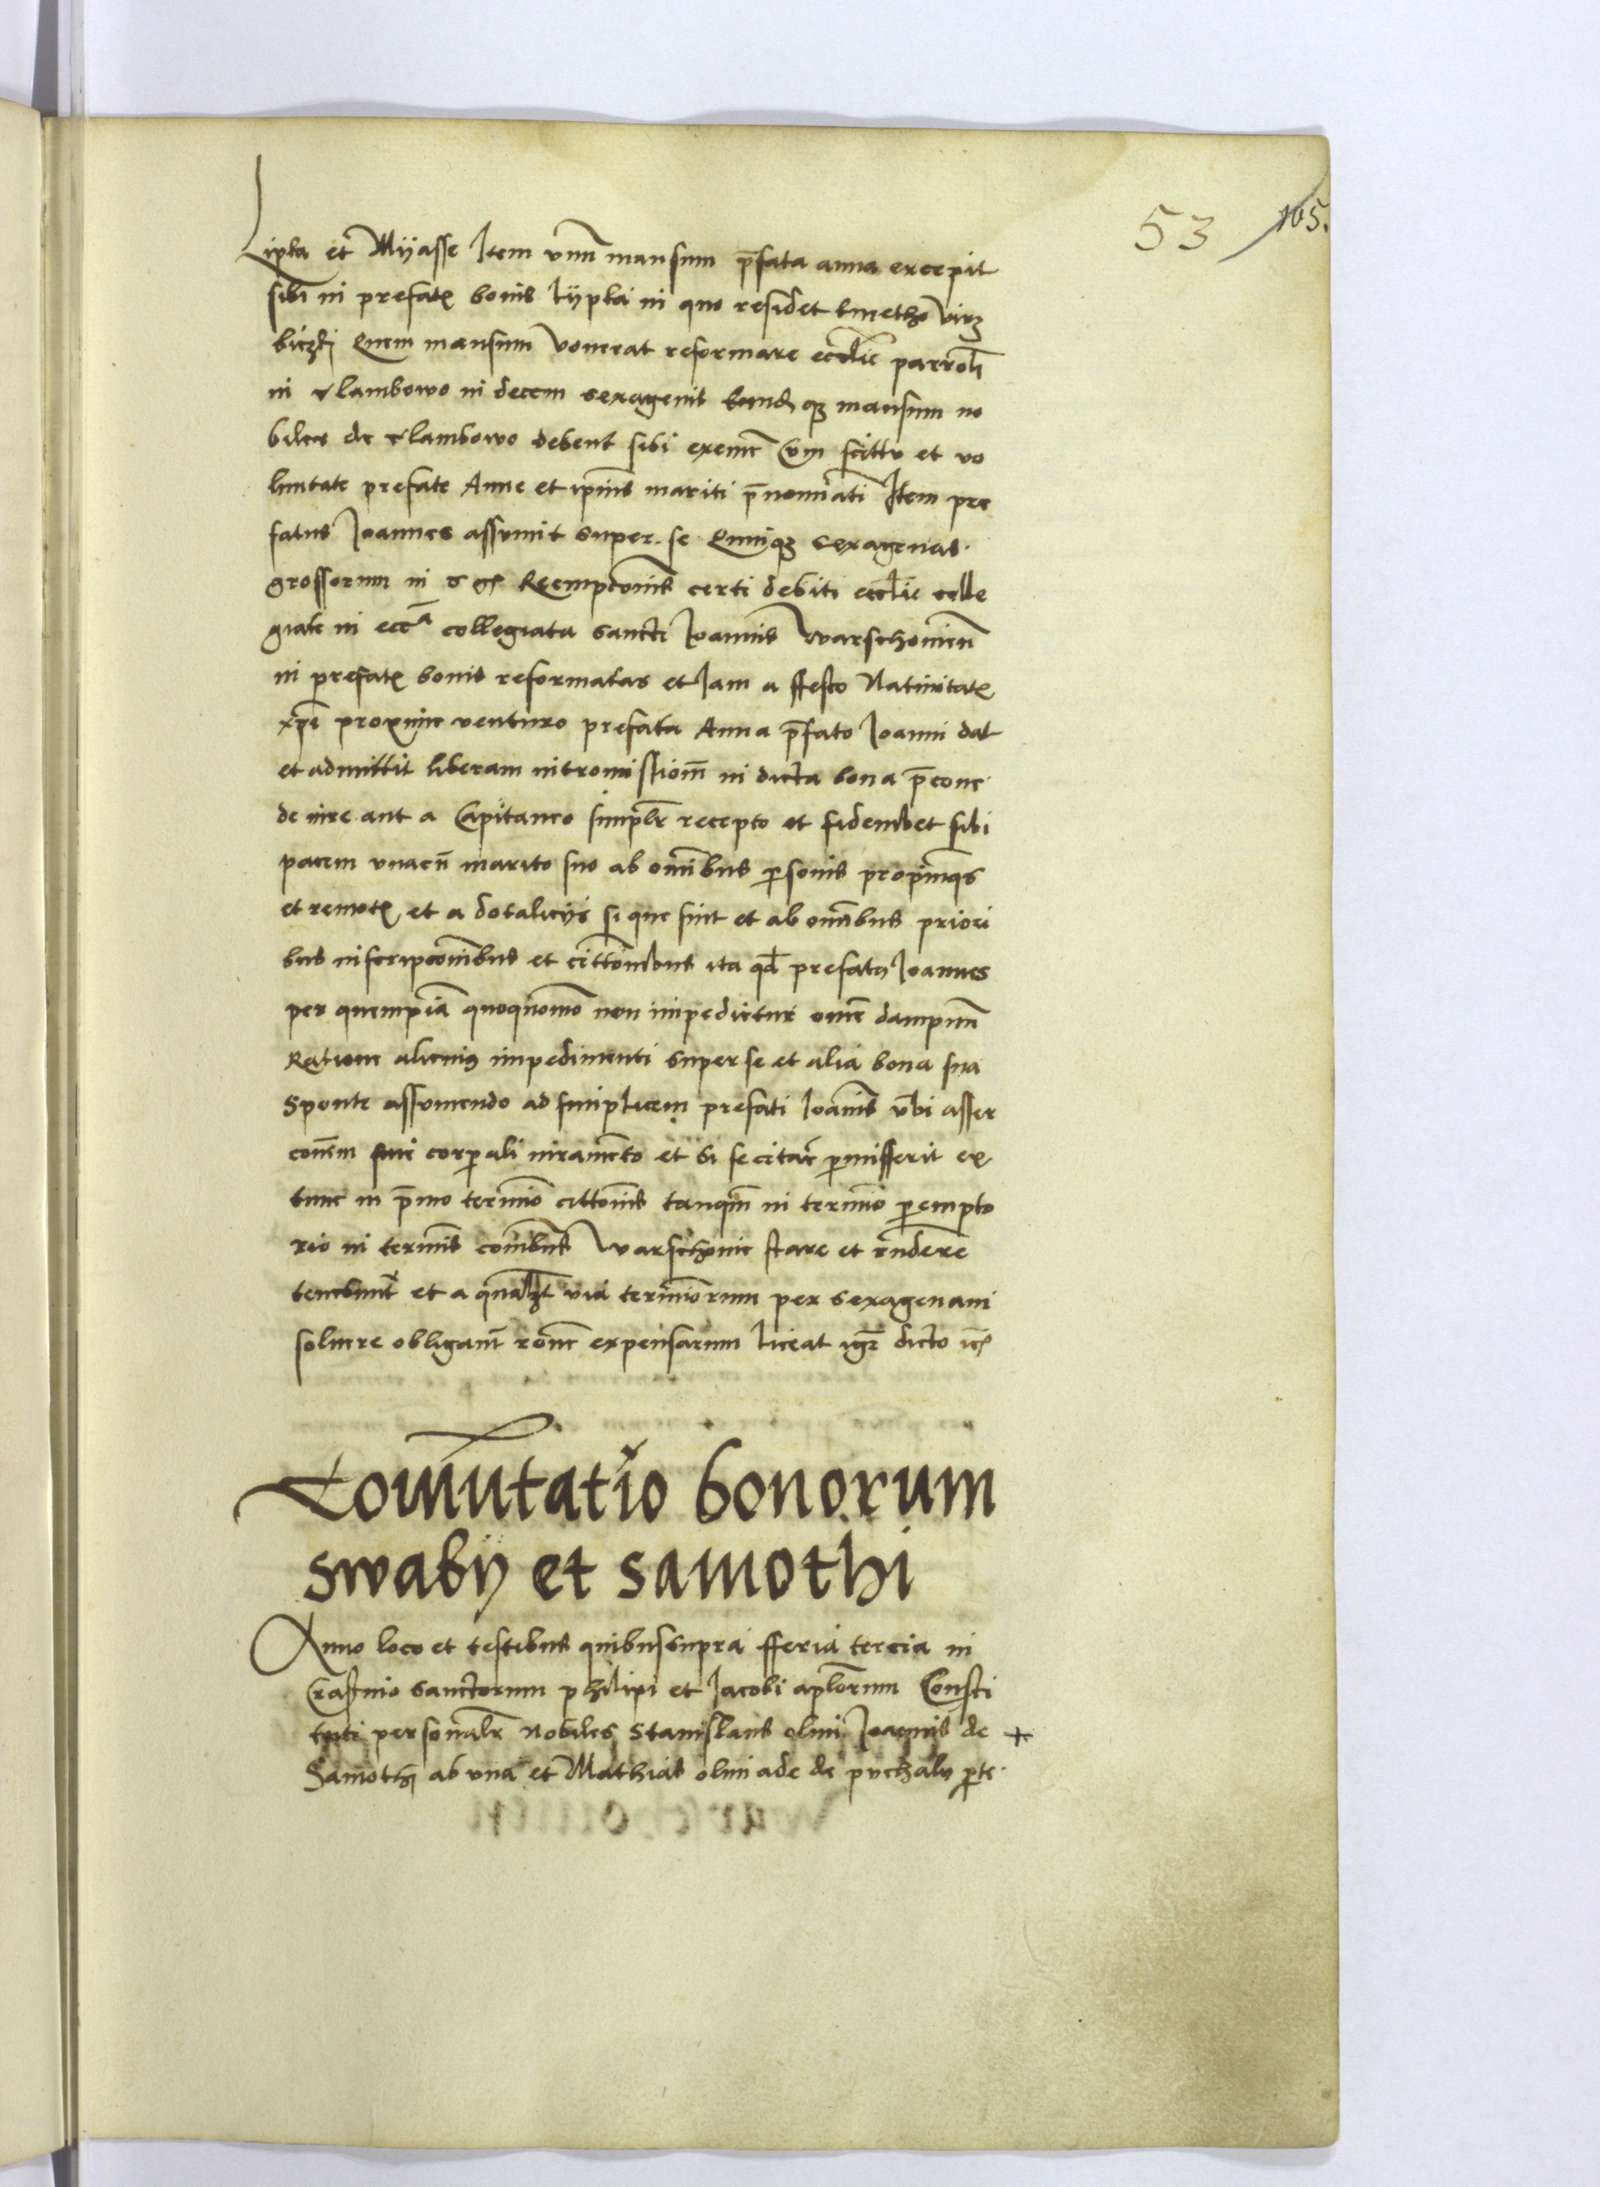 53 105.
Lipka et Myasse Item vnū mansum p̄fata anna excepit
sibi in prefatis bonis Lypka in quo residet kmetho
Quem mansum vouerat reformare ecclie parroch
in in decem sexagenis mansum no
biles de debent sibi Cum scitu et vo
luntate prefate Anne et ipius mariti p̄nominati Item pre
fatus Joannes assumit super se Quinqz sexagenas
grossorum in Reempcionis certi debiti ecclie colle
giate in collegiata sancti Joannis Warschouien̄
in prefatis bonis reformatas et Jam a ffesto Natiuitatis
xp̄i proxime venturo prefata Anna p̄fato Joanni dat
et admittit liberam intromissionē in dicta bona
de iure aut a Capitaneo simplr̄ recepto et fideiubet sibi
pacem vnacū marito suo ab om̄ibus personis propinquis
et remotis et a dotalicijs si que sint et ab om̄ibus priori
bus inscripcōnibus et ita qd̄ prefatus Joannes
per quempiā quoquomō non impedietur om̄e dampnū
Ratione alicuius impedimenti super se et alia bona sua
Sponte assumendo ad simplicem prefati Joannis vl̄bi asser
conem corporali iuramēto et si se citare permisserit ex
tunc in p̄mo termino tanquā in termino perempto
rio in terminis com̄ibus Warschouie stare et r̄ndere
tenebunt̄ et a qualȝt via terminorum per sexagenam
soluere obligant̄ ron̄e expensarum liceat dicto
Com̄utatio bonorum
swaby et samothi
Anno loco et testibus quibus supra fferia tercia in
Crastino sanctorum philipi et Jacobi aplorum Consti
tuti personalr̄ Nobiles Stanislaus olim Joannis de +
Samothi ab vna et Mathias olim ade de puchaly pte